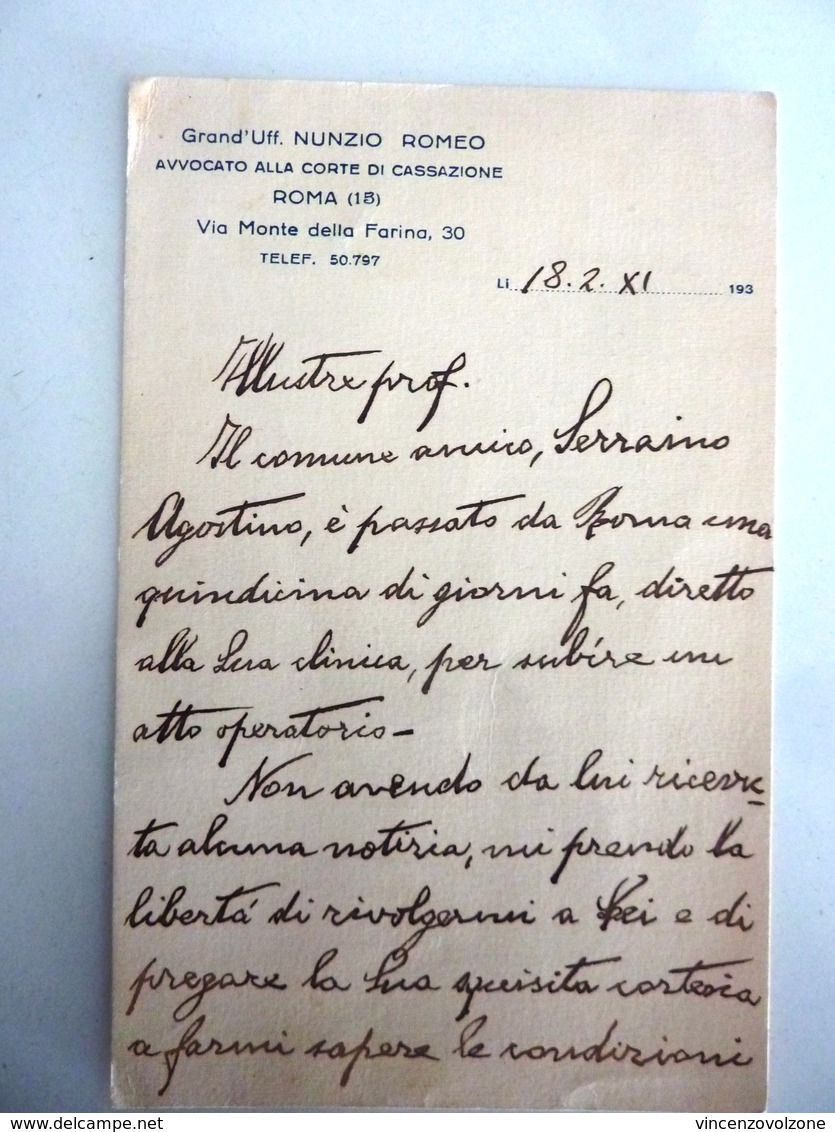 Grand'Uff. NUNZIO ROMEO
AVVOCATO ALLA CORTE DI CASSAZIONE
ROMA (15)
Via Monte della Farina, 30
TELEF. 50.797
Li 18.2.XI 193
Illustre prof.
Il comune amico, Serraino
Agostino, è passato da Roma una
quindicina di giorni fa, diretto
alla Sua clinica, per subire un
atto operatorio-
Non avendo da lui ricevu-
ta alcuna notizia, mi prendo la
libertà di rivolgermi a Lei e di
pregare la Sua squisita cortesia
a farmi sapere le condizioni
delcampe.net
vincenzovolzone